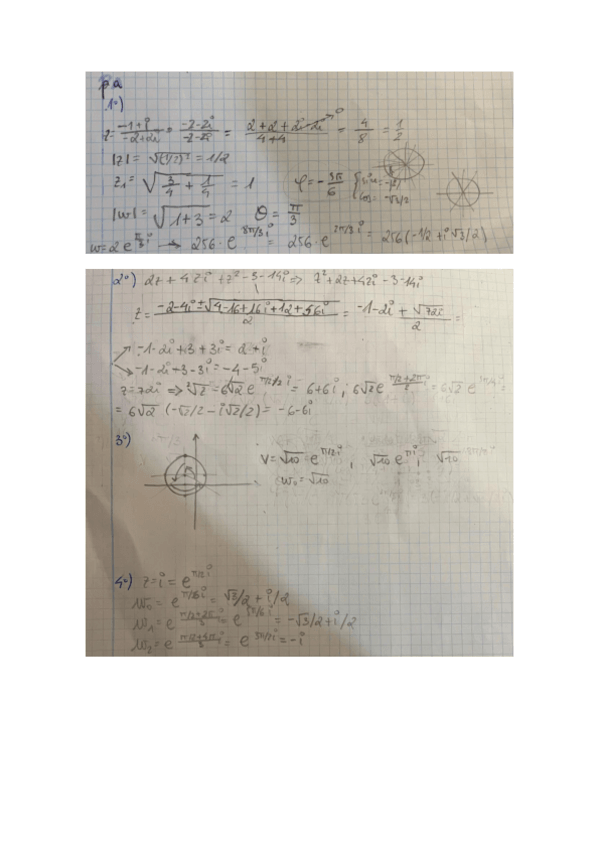 1°)
z = (-1+i)/(-2+2i) · (-2-2i)/(-2-2i) = (2+2+2i-2i)/(4+4) = 4/8 = 1/2
|z| = √(1/2)² = 1/2
z₁ = √(3/4 + 1/4) = 1 φ = -5π/6
|w| = √(1+3) = 2 θ = π/3
w = 2e^(π/3 i) → 256·e^(8π/3 i) = 256·e^(2π/3 i) = 256(-1/2 + i√3/2)
2°) 2z + 4zi + z² - 3 - 14i => z² + 2z + 4zi - 3 - 14i
z = (-2-4i ± √(4-16+16i+12+56i))/2 = -1-2i + √(72i)/2 =
-1-2i+3+3i = 2+i
-1-2i+3-3i = -4-5i
z = 72i => ²√z = 6√2 e^(π/2/2 i) = 6+6i ; 6√2 e^((π/2+2π)/2) = 6√2 e^(π/4 i)
= 6√2 (-√2/2 - i√2/2) = -6-6i
3°)
V = √10 = e^(π/2 i) ; √10 e^(πi) ; √10
w₀ = √10
4°) z = i = e^(π/2 i)
w₀ = e^(π/6 i) = √3/2 + i/2
w₁ = e^((π/2+2π)/3 i) = e^(5π/6 i) = -√3/2 + i/2
w₂ = e^((π/2+4π)/3 i) = e^(3π/2 i) = -i